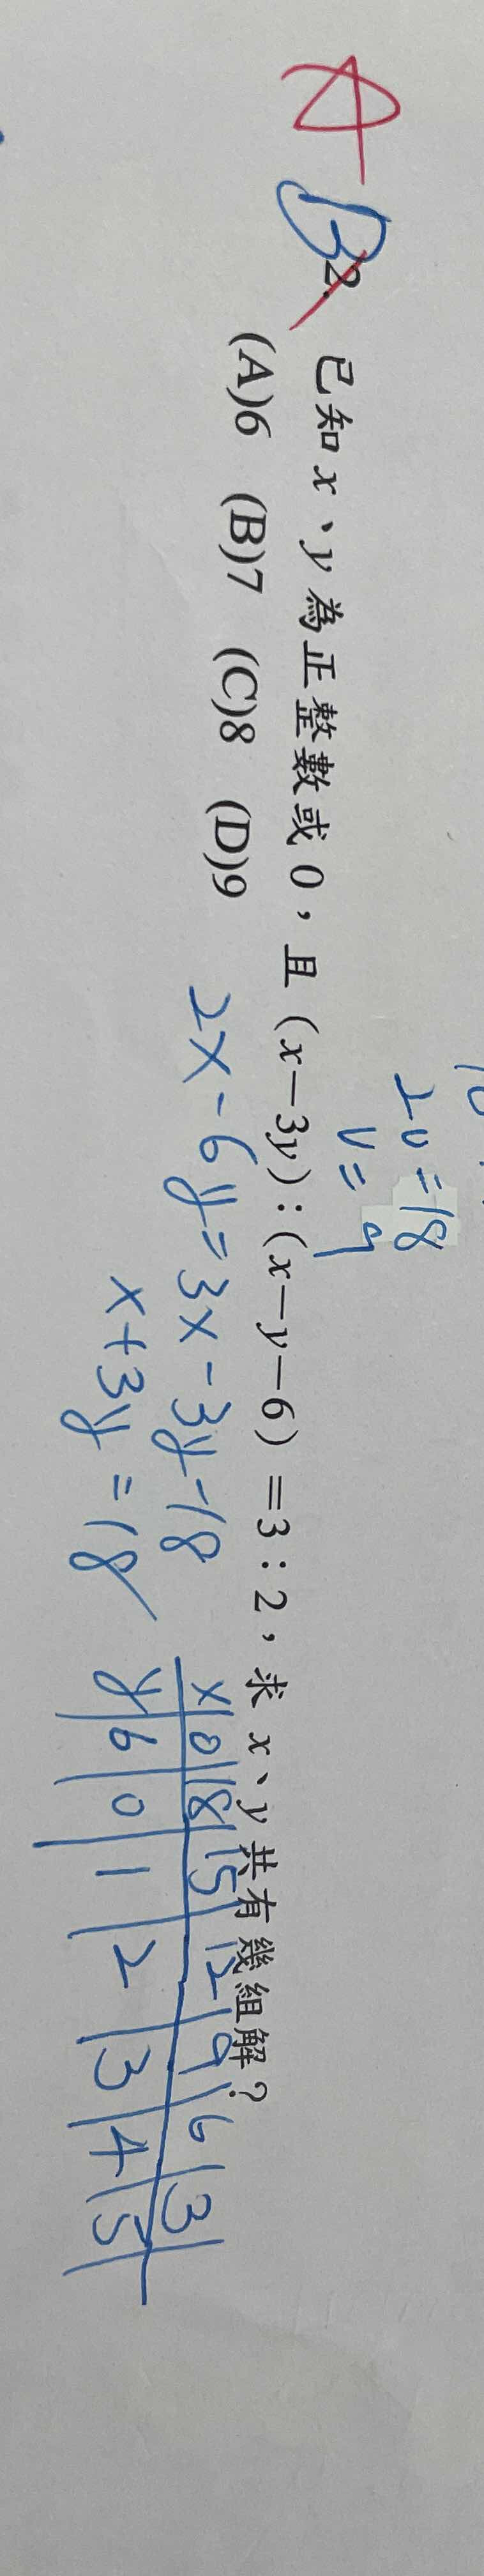 10
2v=18
v=9
A
B
2. 已知 x、y 為正整數或 0，且（x－3y）：（x－y－6）＝3：2，求 x、y 共有幾組解？
(A)6 (B)7 (C)8 (D)9
2x-6y=3x-3y-18
x+3y=18
x|0|18|15|12|9|6|3
y|6|0|1|2|3|4|5